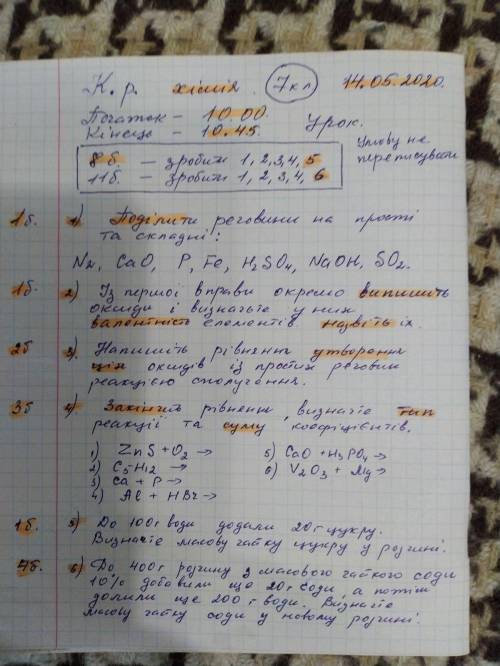 К. р. хімія. 7 кл 14.05.2020.
Початок – 10.00.
Кінець – 10.45. Урок.
Умову не переписувати
8б. — зробити 1, 2, 3, 4, 5
11б. — зробити 1, 2, 3, 4, 6
1б. 1) Поділити речовини на прості
та складні:
N₂, CaO, P, Fe, H₂SO₄, NaOH, SO₂.
1б. 2) Із першої вправи окремо випишіть
оксиди і визначте у них
валентність елементів назвіть їх.
2б 3) Напишіть рівняння утворення
цих оксидів із простих речовин
реакцією сполучення.
3б 4) Закінчіть рівняння, визначте тип
реакції та суму коефіцієнтів.
1) ZnS + O₂ →
2) C₅H₁₂ →
3) Ca + P →
4) Al + HBr →
5) CaO + H₃PO₄ →
6) V₂O₃ + Mg →
1б. 5) До 100г води додали 20г цукру.
Визначте масову частку цукру у розчині.
4б. 6) До 400г розчину з масового часткою соди
10% добавили ще 20г соди, а потім
долили ще 200г води. Визначте
масову частку соди у новому розчині.